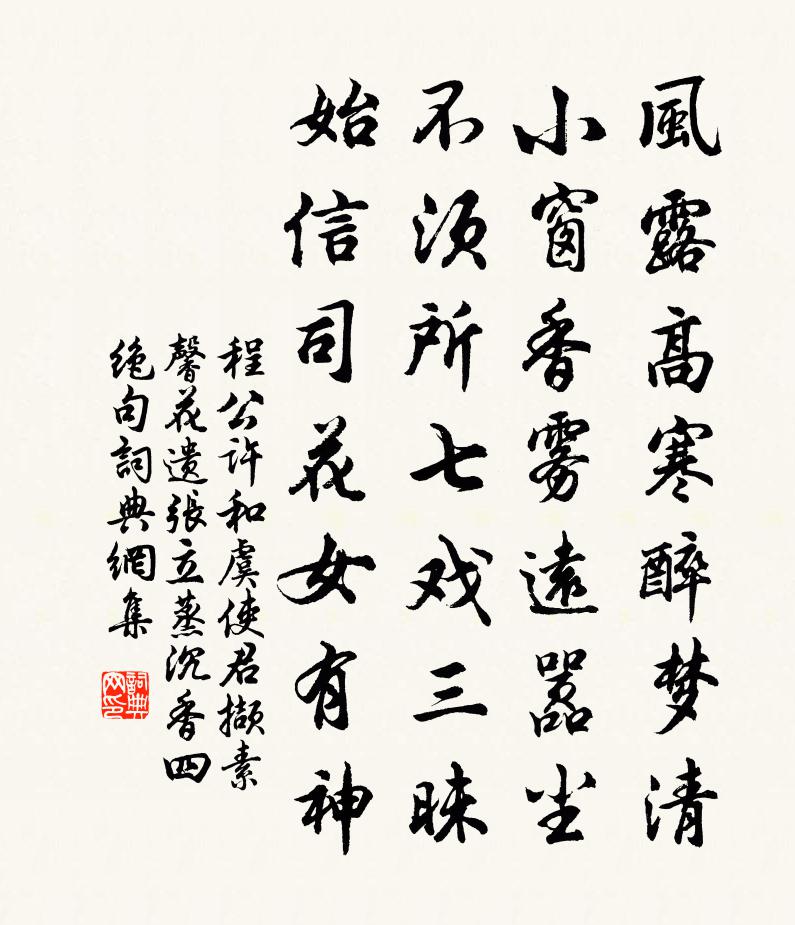 風露高寒醉梦清
小窗香雾遠嚣尘
不须所七戏三昧
始信司花女有神
程公许和虞使君撷素
馨花遗張立蒸沉香四
绝句詞典網集
詞典网印